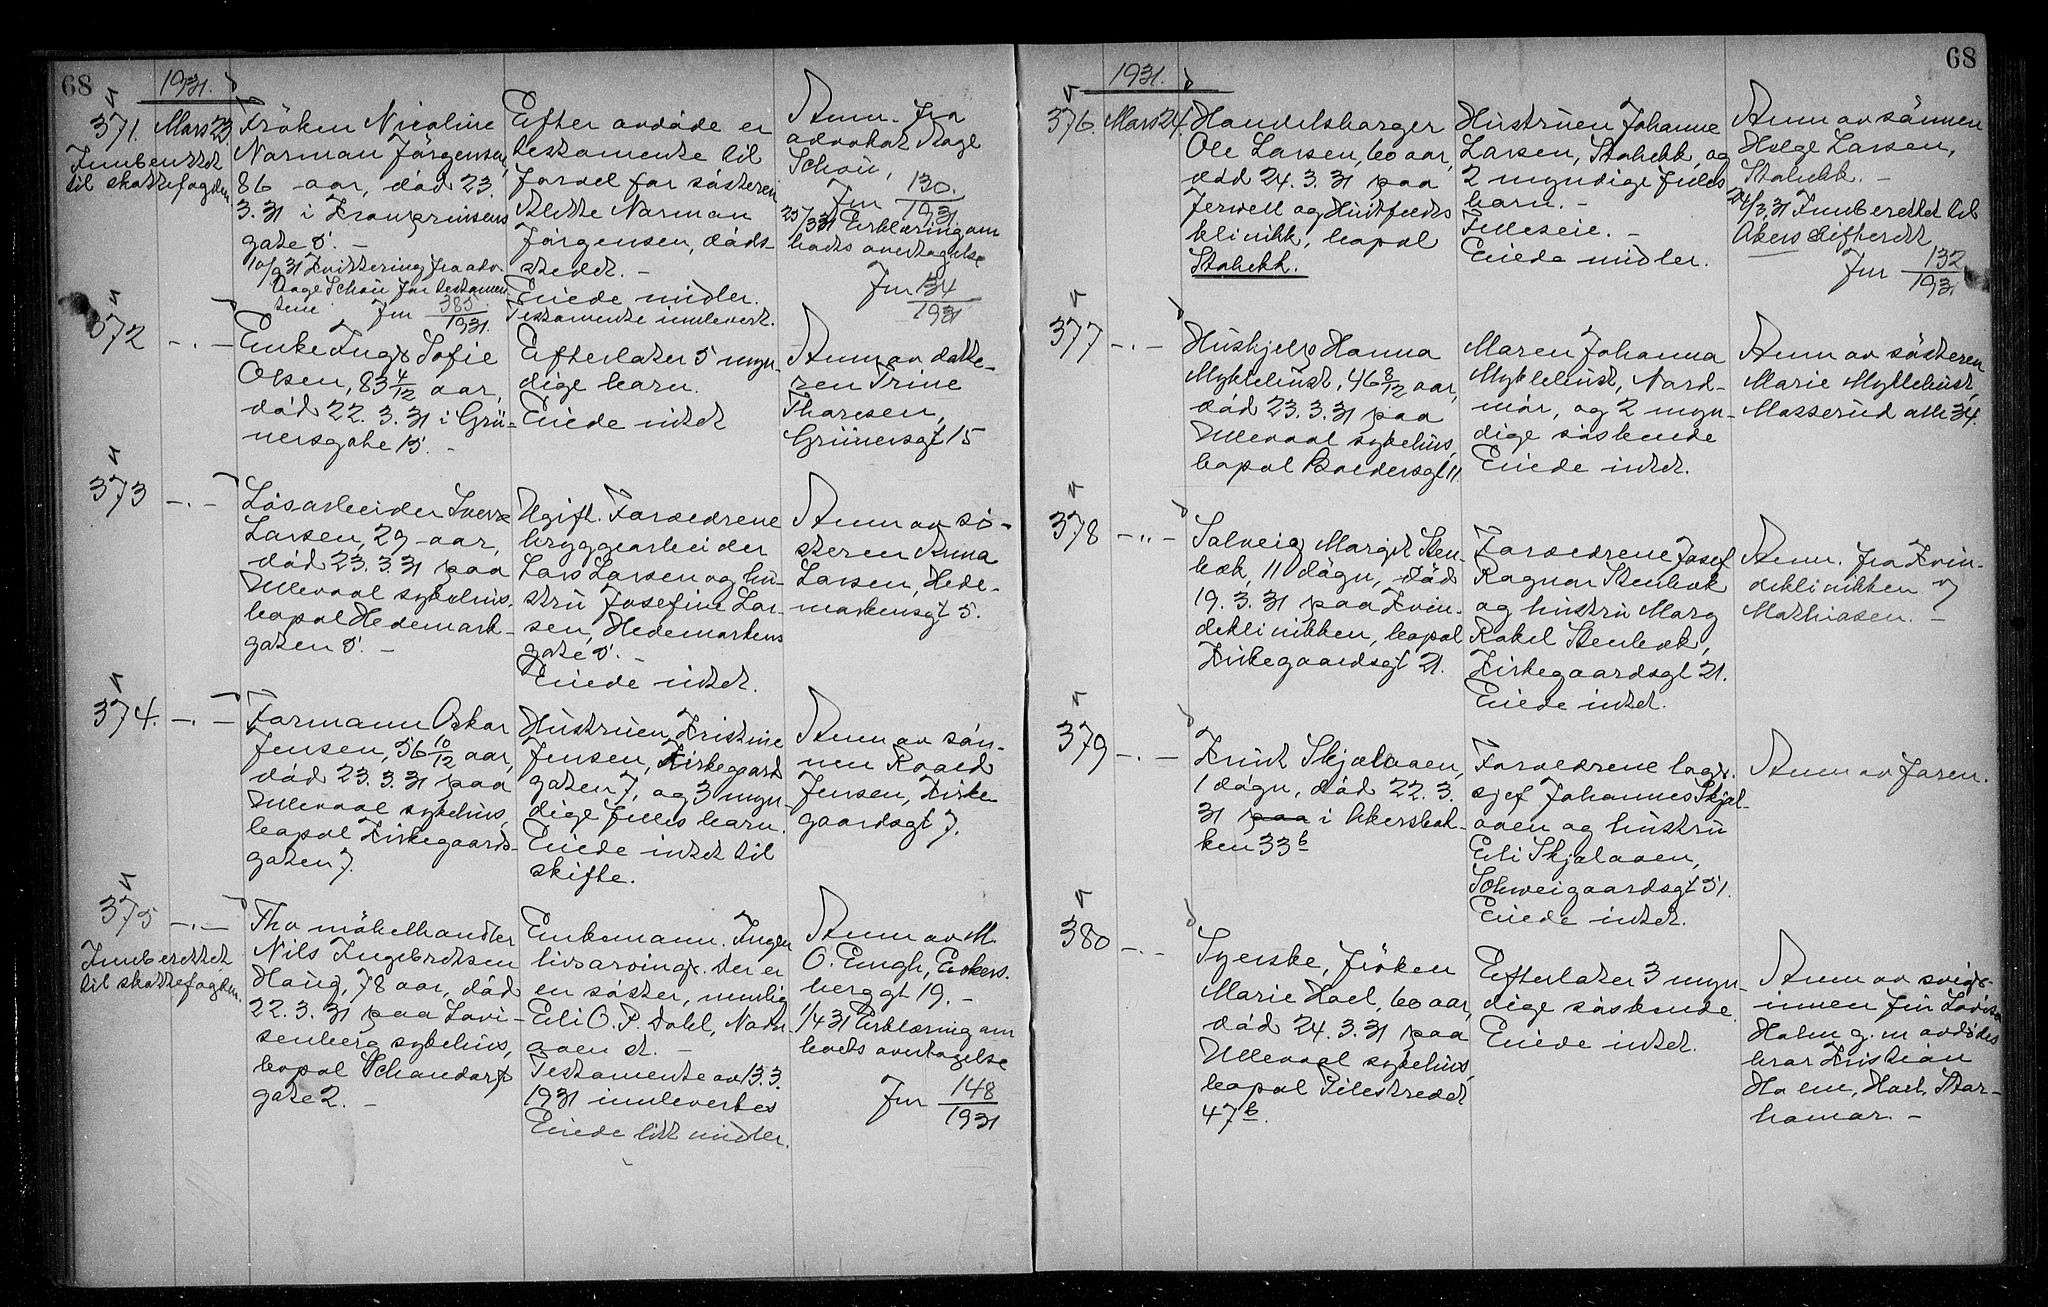 68
1931.
371.
Mars 23.
Innberettet
til skattefogden
Frøken Nicoline
Norman Jørgensen,
86 aar, død 23.
3.31 i Kronprinsens
gate 5. -
10/9 31 Kvittering fra adv.
Aage Schou for testamen
tene. Jnr 385/1931.
Efter avdøde er
testamente til
fordel for søsteren
Norman
Jørgensen, døds-
stedet. -
Eiede midler.
Testamente innlevert.
Anm. fra
advokat Aage
Schou,
Jnr 130./1931
25/3 31 Erklæring om
boets overtagelse
Jnr 134/1931
372
-.-
Enke Inga Sofie
Olsen, 83 4/12 aar,
død 22.3.31 i Grü-
nersgate 15. -
Efterlater 5 myn-
dige barn.
Eiede intet
Anm av datte-
ren Trine
Thoresen,
Grünersgt 15
373
-.-
Løsarbeider Sverre
Larsen, 29 aar,
død 23.3.31 paa
Ullevaal sykehus,
bopæl Hedemark-
gaten 5. -
Ugift. Forældrene
bryggearbeider
Lars Larsen og hu-
stru Josefine Lar-
sen, Hedemarkens
gate 5. -
Eiede intet.
Anm av sø-
steren Anna
Larsen, Hede-
markensgt 5.
374.
-.-
Formann Oskar
Jensen, 56 10/12 aar,
død 23.3.31 paa
Ullevaal sykehus,
bopæl Kirkegaards-
gaten 7.
Hustruen Kristine
Jensen, Kirkegaard
gaten 7, og 3 myn-
dige felles barn.
Eiede intet til
skifte.
Anm av søn-
nen Roald
Jensen, Kirke
gaardsgt 7.
375
-.-
Innberettet
til skattefogden.
Fhv møbelhandler
Nils Ingebretsen
Haug, 78 aar, død
22.3.31 paa Lovi-
senberg sykehus,
bopæl Schandorfs
gate 2. -
Enkemann. Ingen
livsarving. Der er
en søster, nemlig
Eli O. P. Dahl,
st. -
Testamente av 13.3.
1931 innlevertes
Eiede litt midler.
Anm av M.
O. Engh, Eckers-
berggt 19. -
1/4 31 Erklæring om
boets overtagelse
Jnr 148/1931
68
1931.
376.
Mars 24.
Handelsborger
Ole Larsen, 60 aar,
død 24.3.31 paa
Jervell og Huitfeldts
klinikk, bopæl
Stabekk.
Hustruen Johanne
Larsen, Stabekk, og
2 myndige felles
barn. -
Felleseie. -
Eiede midler.
Anm av sønnen
Helge Larsen,
Stabekk. -
24/3 31 Innberettet til
Akers skifterett
Jnr 132/1931
377
-.-
Hushjelp Hanna
Myklebust, 46 8/12 aar,
død 23.3.31 paa
Ullevaal sykehus,
bopæl Boldersgt 11.
Maren Johanna
Myklebust, Nord-
mør, og 2 myn-
dige søskende
Eiede intet.
Anm av søsteren
Marie Myklebust,
Mosserud alle 34.
378
-"-
Solveig Margit Sten-
bæk, 11 døgn, død
19.3.31 paa Kvin-
deklinikken, bopæl
Kirkegaardsgt 21.
Forældrene Josef
Ragnar Stenbæk
og hustru Mary
Rakel Stenbæk,
Kirkegaardsgt 21.
Eiede intet.
Anm. fra Kvin-
deklinikken v
Mathiasen. -
379
-.-
Knut Skjelaaen,
1 døgn, død 22.3.
31 paa i Akersbak-
ken 33b
Forældrene lager-
sjef Johannes Skjel-
aaen og hustru
Eli Skjelaaen,
Schweigaardsgt 51.
Eiede intet.
Anm av faren.
380
-.-
Syerske, frøken
Marie Hoel, 60 aar,
død 24.3.31 paa
Ullevaal sykehus,
bopæl Pilestredet
47b.
Efterlater 3 myn-
dige søskende.
Eiede intet.
Anm av svige-
innen fru Lovisa
Holm g. m. avdødes
bror Kristian
Holm, Hoel, Stor-
hamar. -